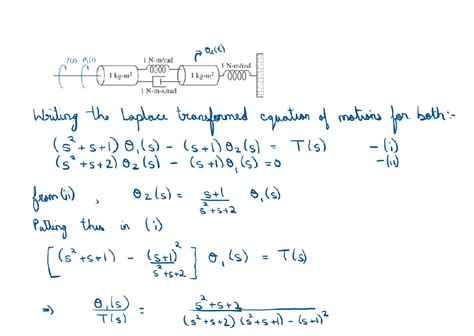 T(t) θ₁(t)
1 N-m/rad
θ₂(t)
1 kg-m²
1 kg-m²
1 N-m/rad
1 N-m-s/rad
Writing the Laplace transformed equation of motions for both:-
(s²+s+1) θ₁(s) - (s+1) θ₂(s) = T(s) -(i)
(s²+s+2) θ₂(s) - (s+1) θ₁(s) = 0 -(ii)
from (ii), θ₂(s) = (s+1)/(s²+s+2) θ₁(s)
Putting this in (i)
[(s²+s+1) - (s+1)²/(s²+s+2)] θ₁(s) = T(s)
⇒ θ₁(s)/T(s) = (s²+s+2)/((s²+s+2)(s²+s+1) - (s+1)²)